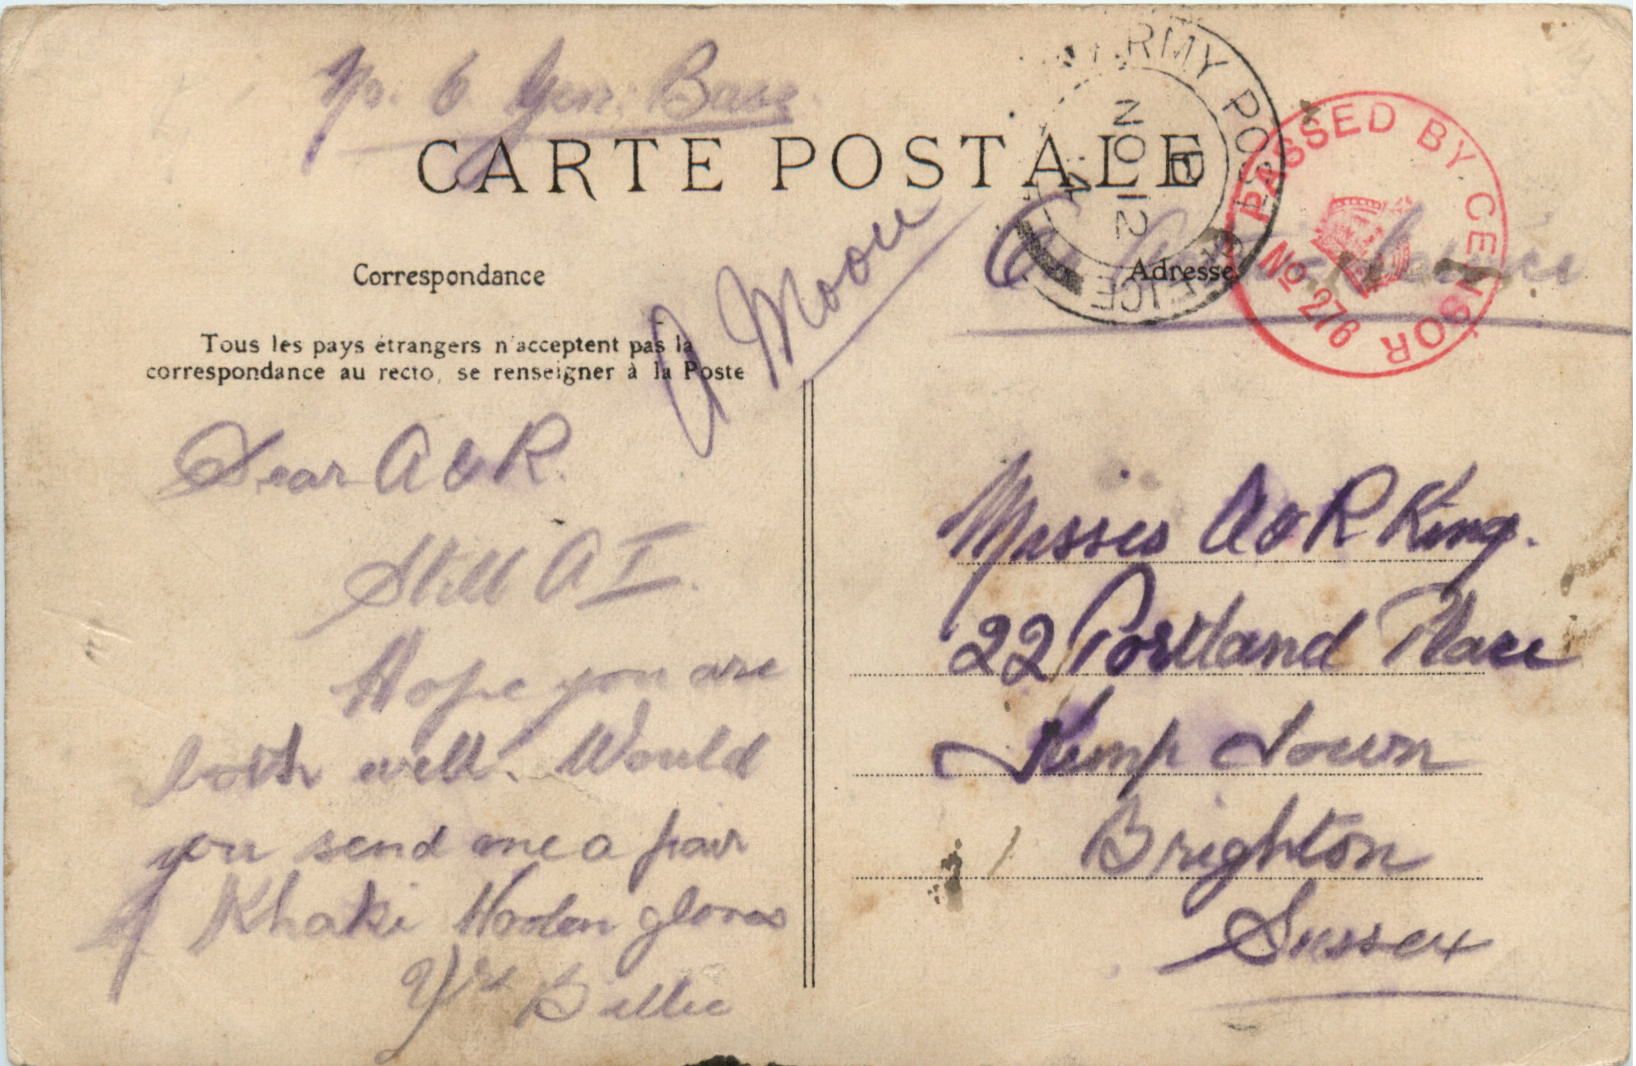 No. 6 Gen: Base.
CARTE POSTALE
ARMY POST OFFICE
NO 12
PASSED BY CENSOR
No 276
On Active Service
Correspondance
Adresse
A Moon
Tous les pays étrangers n'acceptent pas la
correspondance au recto, se renseigner à la Poste
Dear A & R.
Still A I.
Hope you are
both well. Would
you send me a pair
Khaki Woolen gloves
Yrs Billie
Misses A & R King.
22 Portland Place
Kemp Town
Brighton
Sussex